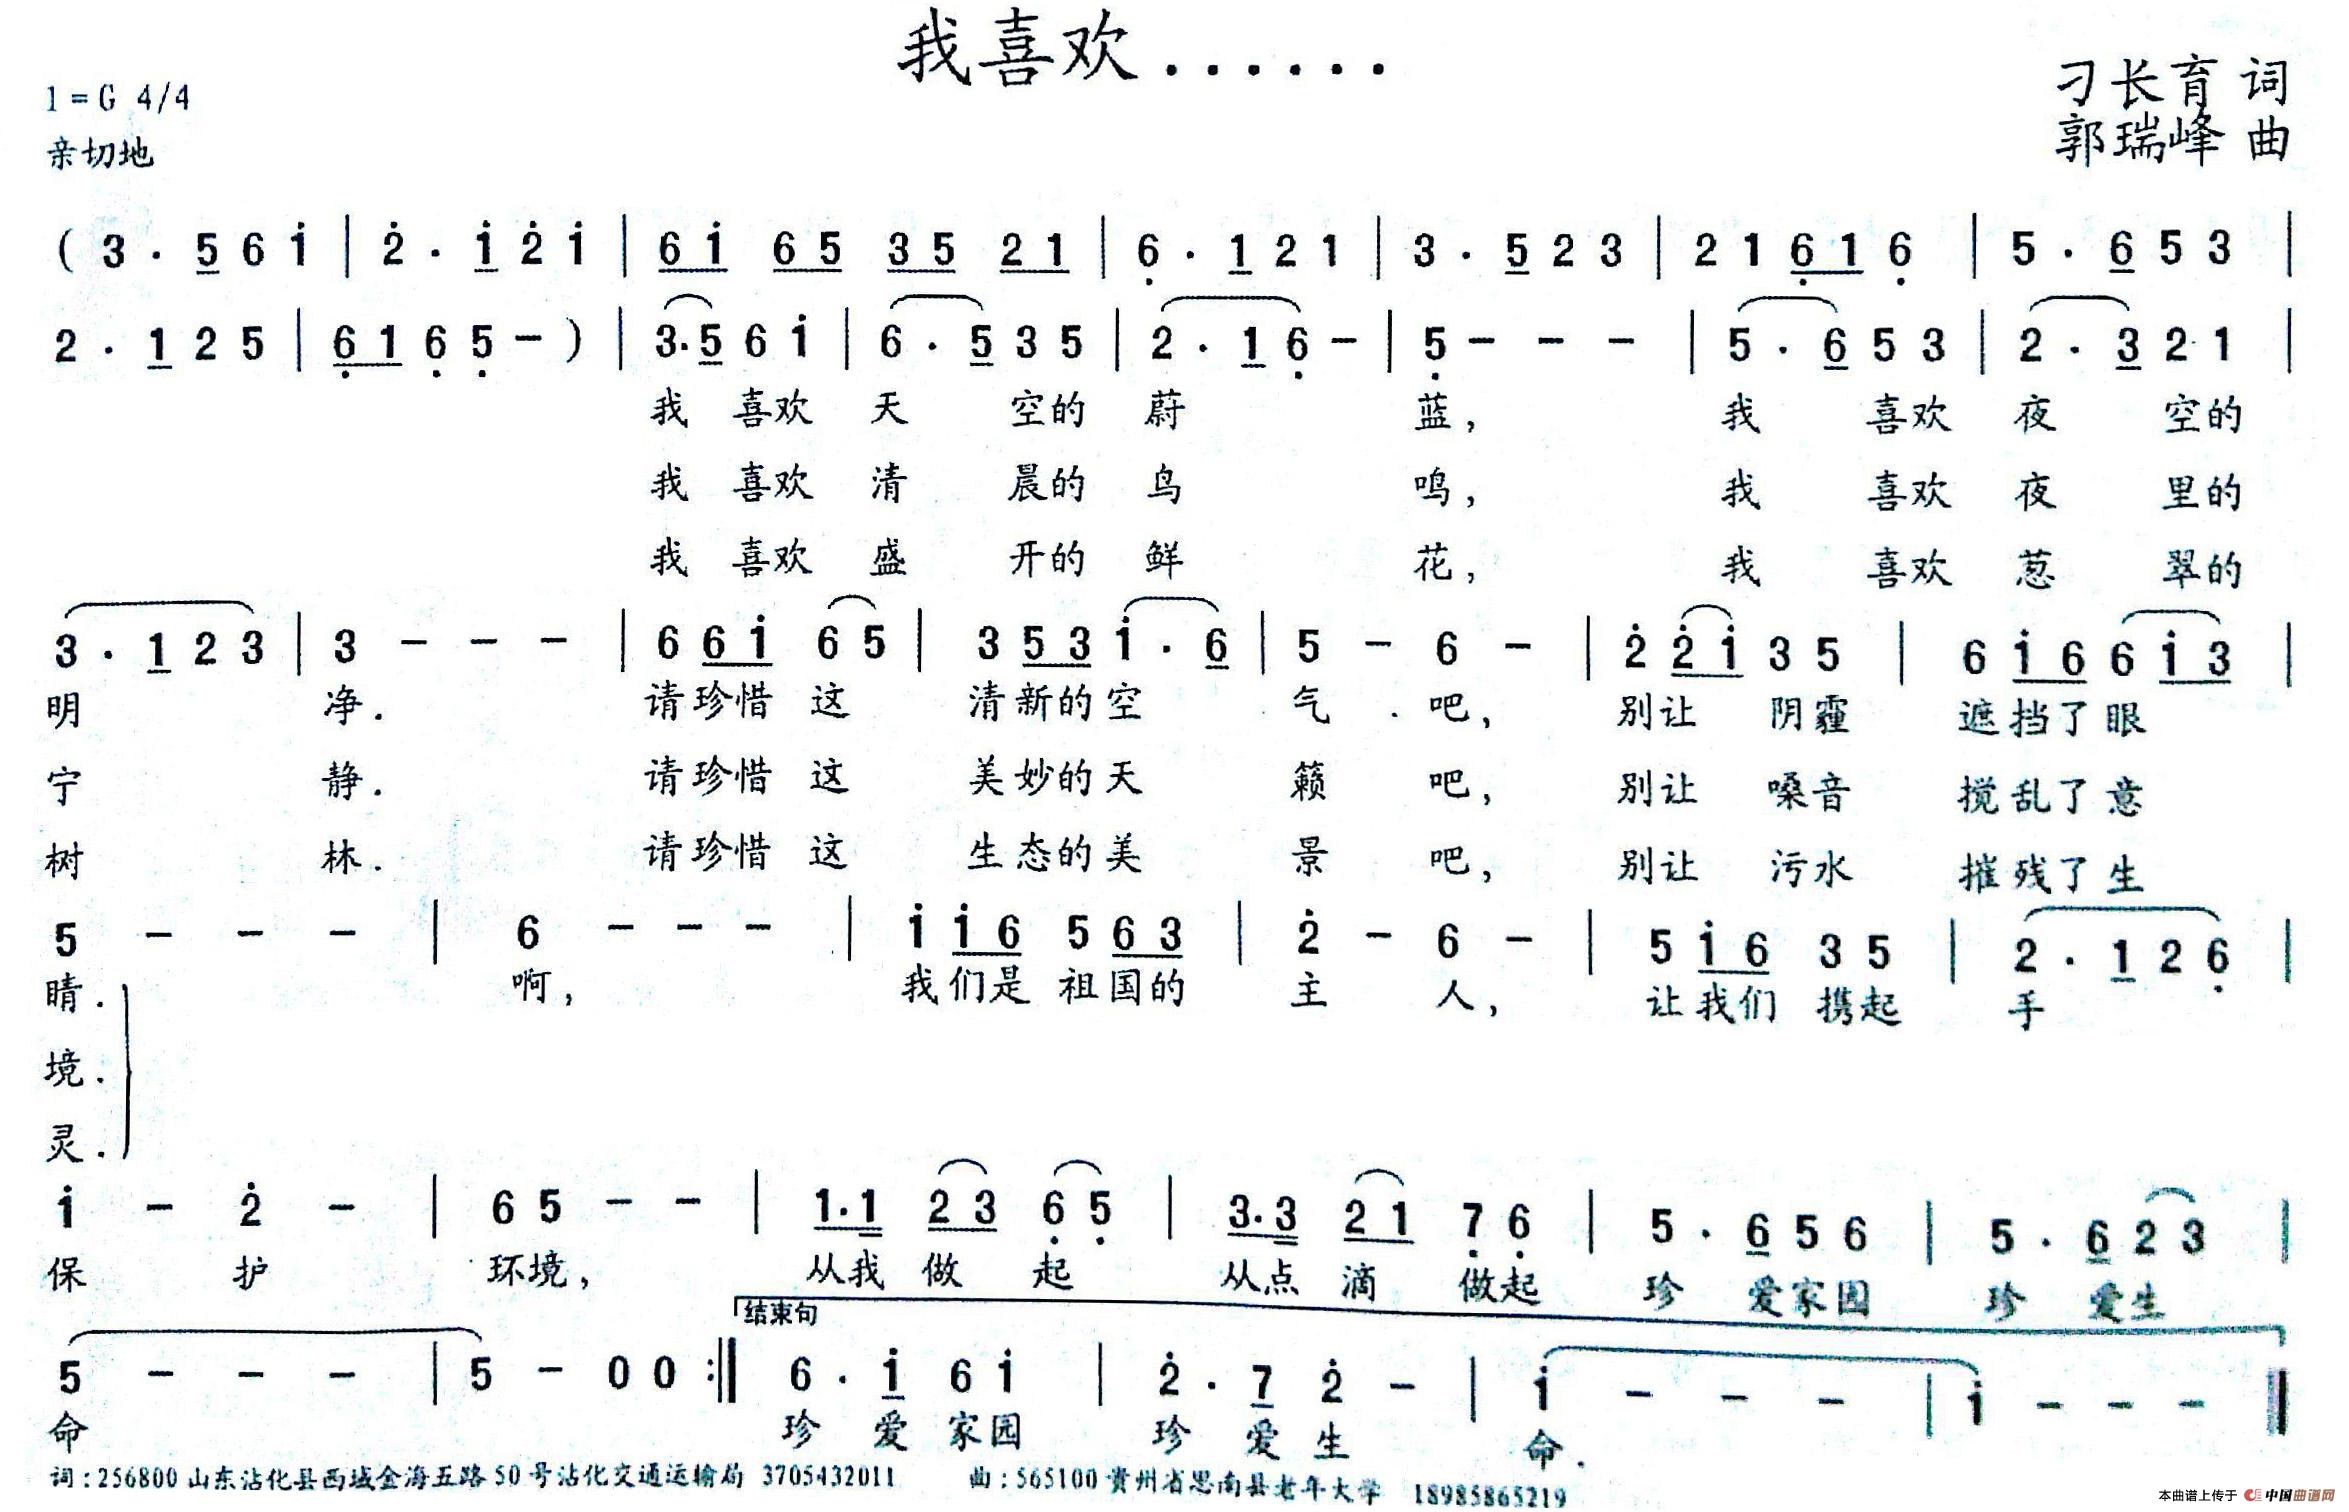 我喜欢......
1=G 4/4
刁长育 词
亲切地
郭瑞峰 曲
( 3 · 5 6 i | 2 · i 2 i | 6 i 6 5 3 5 2 1 | 6 · 1 2 1 | 3 · 5 2 3 | 2 1 6 1 6 | 5 · 6 5 3 |
2 · 1 2 5 | 6 1 6 5 - ) | 3 · 5 6 i | 6 · 5 3 5 | 2 · 1 6 - | 5 - - - | 5 · 6 5 3 | 2 · 3 2 1 |
我 喜欢 天 空的 蔚 蓝, 我 喜欢 夜 空的
我 喜欢 清 晨的 鸟 鸣, 我 喜欢 夜 里的
我 喜欢 盛 开的 鲜 花, 我 喜欢 葱 翠的
3 · 1 2 3 | 3 - - - | 6 6 i 6 5 | 3 5 3 i · 6 | 5 - 6 - | 2 2 i 3 5 | 6 i 6 6 i 3 |
明 净. 请珍惜 这 清新的空 气 吧, 别让 阴霾 遮挡了眼
宁 静. 请珍惜 这 美妙的天 籁 吧, 别让 嗓音 搅乱了意
树 林. 请珍惜 这 生态的美 景 吧, 别让 污水 摧残了生
5 - - - | 6 - - - | i i 6 5 6 3 | 2 - 6 - | 5 i 6 3 5 | 2 · 1 2 6 |
睛. 啊, 我们是 祖国的 主 人, 让我们 携起 手
境.
灵.
i - 2 - | 6 5 - - | 1 · 1 2 3 6 5 | 3 · 3 2 1 7 6 | 5 · 6 5 6 | 5 · 6 2 3 |
保 护 环境, 从我 做 起 从点 滴 做起 珍 爱家园 珍 爱生
结束句
5 - - - | 5 - 0 0 :| 6 · i 6 i | 2 · 7 2 - | i - - - | i - - - |
命 珍 爱 家园 珍 爱 生 命.
词:256800山东沾化县西城金海五路50号沾化交通运输局 3705432011 曲:565100贵州省思南县老年大学 18985865219
本曲谱上传于 中国曲谱网